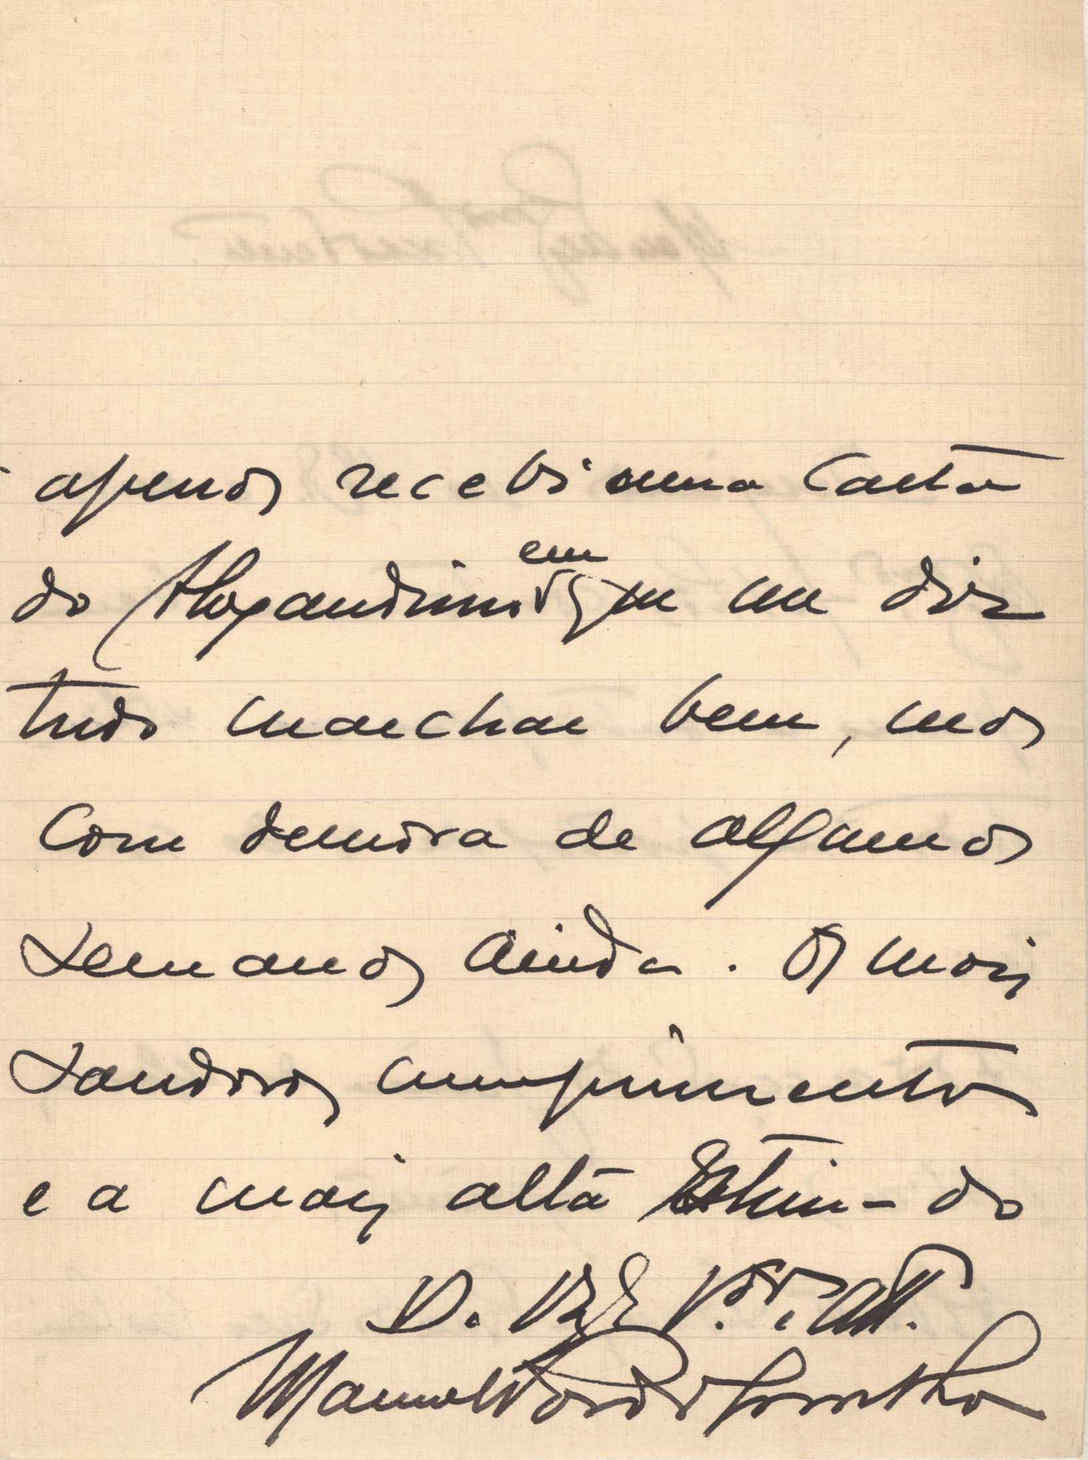 apenas recebi uma carta
do Alexandrino em que me diz
tudo marchar bem, mas
com demora de algumas
semanas ainda. Os mais
saudosos cumprimentos
e a mais alta estim- do
D. V. Ex.
Manoel